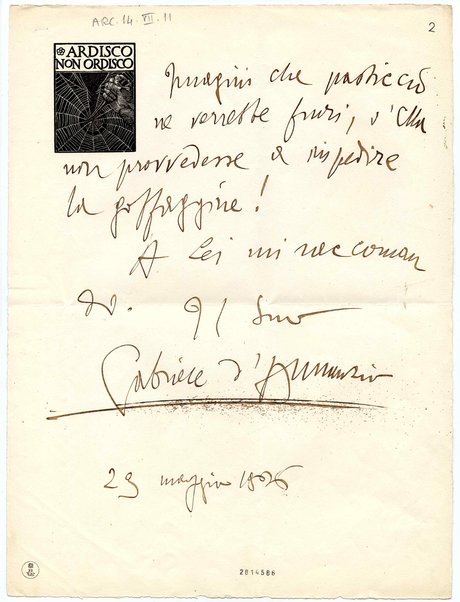 ARC. 14. VII. 11
2
ARDISCO
NON ORDISCO
Imagini che pasticcio
ne verrebbe fuori, s'Ella
non provvedesse a impedire
la goffaggine!
A Lei mi raccoman
do. Il Suo
Gabriele d'Annunzio
29 maggio 1906
2814586